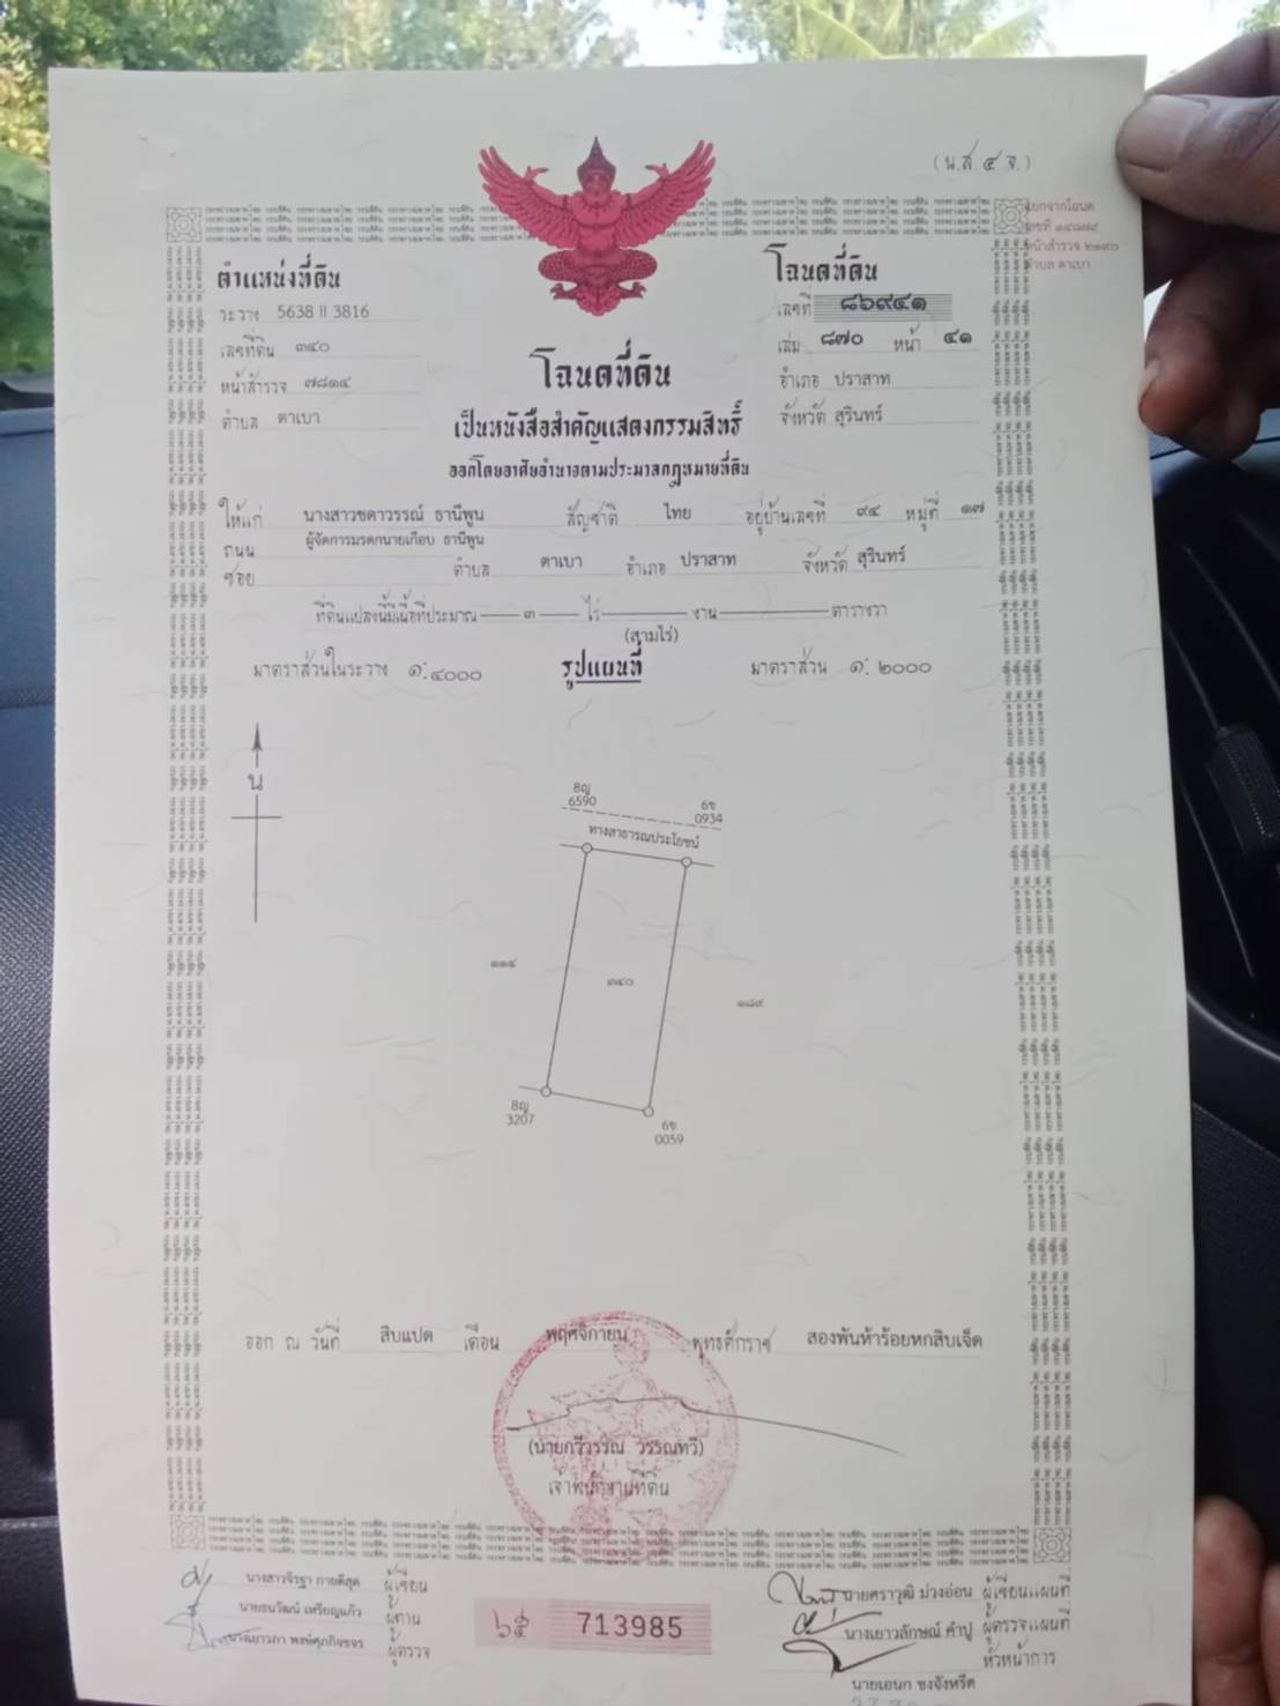 (น.ส. ๔ จ.)
แยกจากโฉนด
หน้าสำรวจ ๒๑๙๐
ตำบล ตาเบา
ตำแหน่งที่ดิน
ระวาง 5638 II 3816
เลขที่ดิน ๓๔๐
หน้าสำรวจ ๗๘๑๔
ตำบล ตาเบา
โฉนดที่ดิน
เลขที่ ๘๖๙๔๑
เล่ม ๘๗๐ หน้า ๔๑
อำเภอ ปราสาท
จังหวัด สุรินทร์
โฉนดที่ดิน
เป็นหนังสือสำคัญแสดงกรรมสิทธิ์
ออกโดยอาศัยอำนาจตามประมวลกฎหมายที่ดิน
ให้แก่ นางสาวชดาวรรณ์ ธานีพูน สัญชาติ ไทย อยู่บ้านเลขที่ ๙๔ หมู่ที่ ๑๗
ผู้จัดการมรดกนายเกือบ ธานีพูน
ถนน
ซอย ตำบล ตาเบา อำเภอ ปราสาท จังหวัด สุรินทร์
ที่ดินแปลงนี้มีเนื้อที่ประมาณ ๓ ไร่ งาน ตารางวา
(สามไร่)
มาตราส่วนในระวาง ๑:๔๐๐๐ รูปแผนที่ มาตราส่วน ๑: ๒๐๐๐
น
8ญ
6590
6ข
0934
ทางสาธารณประโยชน์
๑๑๔
๓๔๐
๑๘๙
8ญ
3207
6ข
0059
ออก ณ วันที่ สิบแปด เดือน พฤศจิกายน พุทธศักราช สองพันห้าร้อยหกสิบเจ็ด
(นายกวีวรรณ วรรณทวี)
เจ้าพนักงานที่ดิน
นางสาวจิรฐา กายดีสุด ผู้เขียน
นายธนวัฒน์ เหรียญแก้ว ผู้ทาน
นางเยาวภา พงษ์ศุภกิจขจร ผู้ตรวจ
๖๕ 713985
นายศราวุฒิ ม่วงอ่อน ผู้เขียนแผนที่
นางเยาวลักษณ์ คำปู ผู้ตรวจแผนที่
หัวหน้าการ
นายเอนก ชงจังหรีด